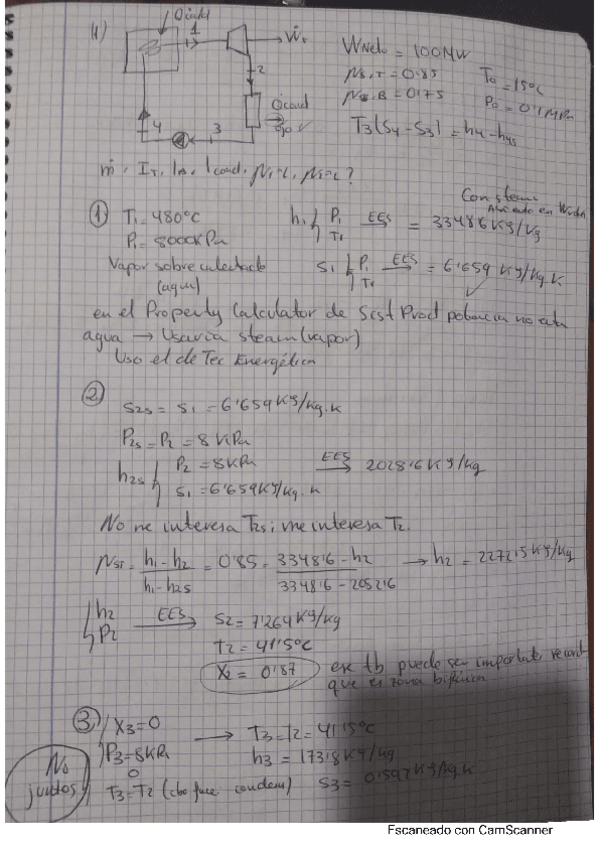 (1)
Q̇cald
1
Ẇt
2
Q̇cond
3
4
WNeto = 100MW
ηs,T = 0'85
ηs,B = 0'75
T0 = 15°C
P0 = 0'1MPa
T3(S4-S3) = h4-h4s
ṁ, IT, IB, Icond,
① T1 = 480°C
P1 = 8000KPa
Vapor sobrecalentado
(agua)
h1 { P1 T1 EES → = 3348'6 KJ/kg
Con steam
s1 { P1 T1 EES → = 6'659 KJ/kg.K
en el Property Calculator de Sist Prod potencia no esta
agua → Usaría steam (vapor)
Uso el de Tec Energética
②
S2s = S1 = 6'659 KJ/kg.K
P2s = P2 = 8KPa
h2s { P2 = 8KPa
S1 = 6'659KJ/kg.K
EES → 2028'6 KJ/kg
No me interesa T2s; me interesa T2.
ηST = h1-h2 / h1-h2s = 0'85 = 3348'6-h2 / 3348'6-2052'6 → h2 = 2272'5 KJ/kg
{ h2 P2 EES → S2 = 7'264 KJ/kg
T2 = 41'5°C
X2 = 0'87
ese tb puede ser important, record
que es zona bifásica
③ { X3=0
P3=8KPa
→ T3=T2 = 41'5°C
h3 = 173'8 KJ/kg
S3 = 0'592 KJ/kg.K
T3=T2 (cbo fase condens)
No
juntos
Escaneado con CamScanner